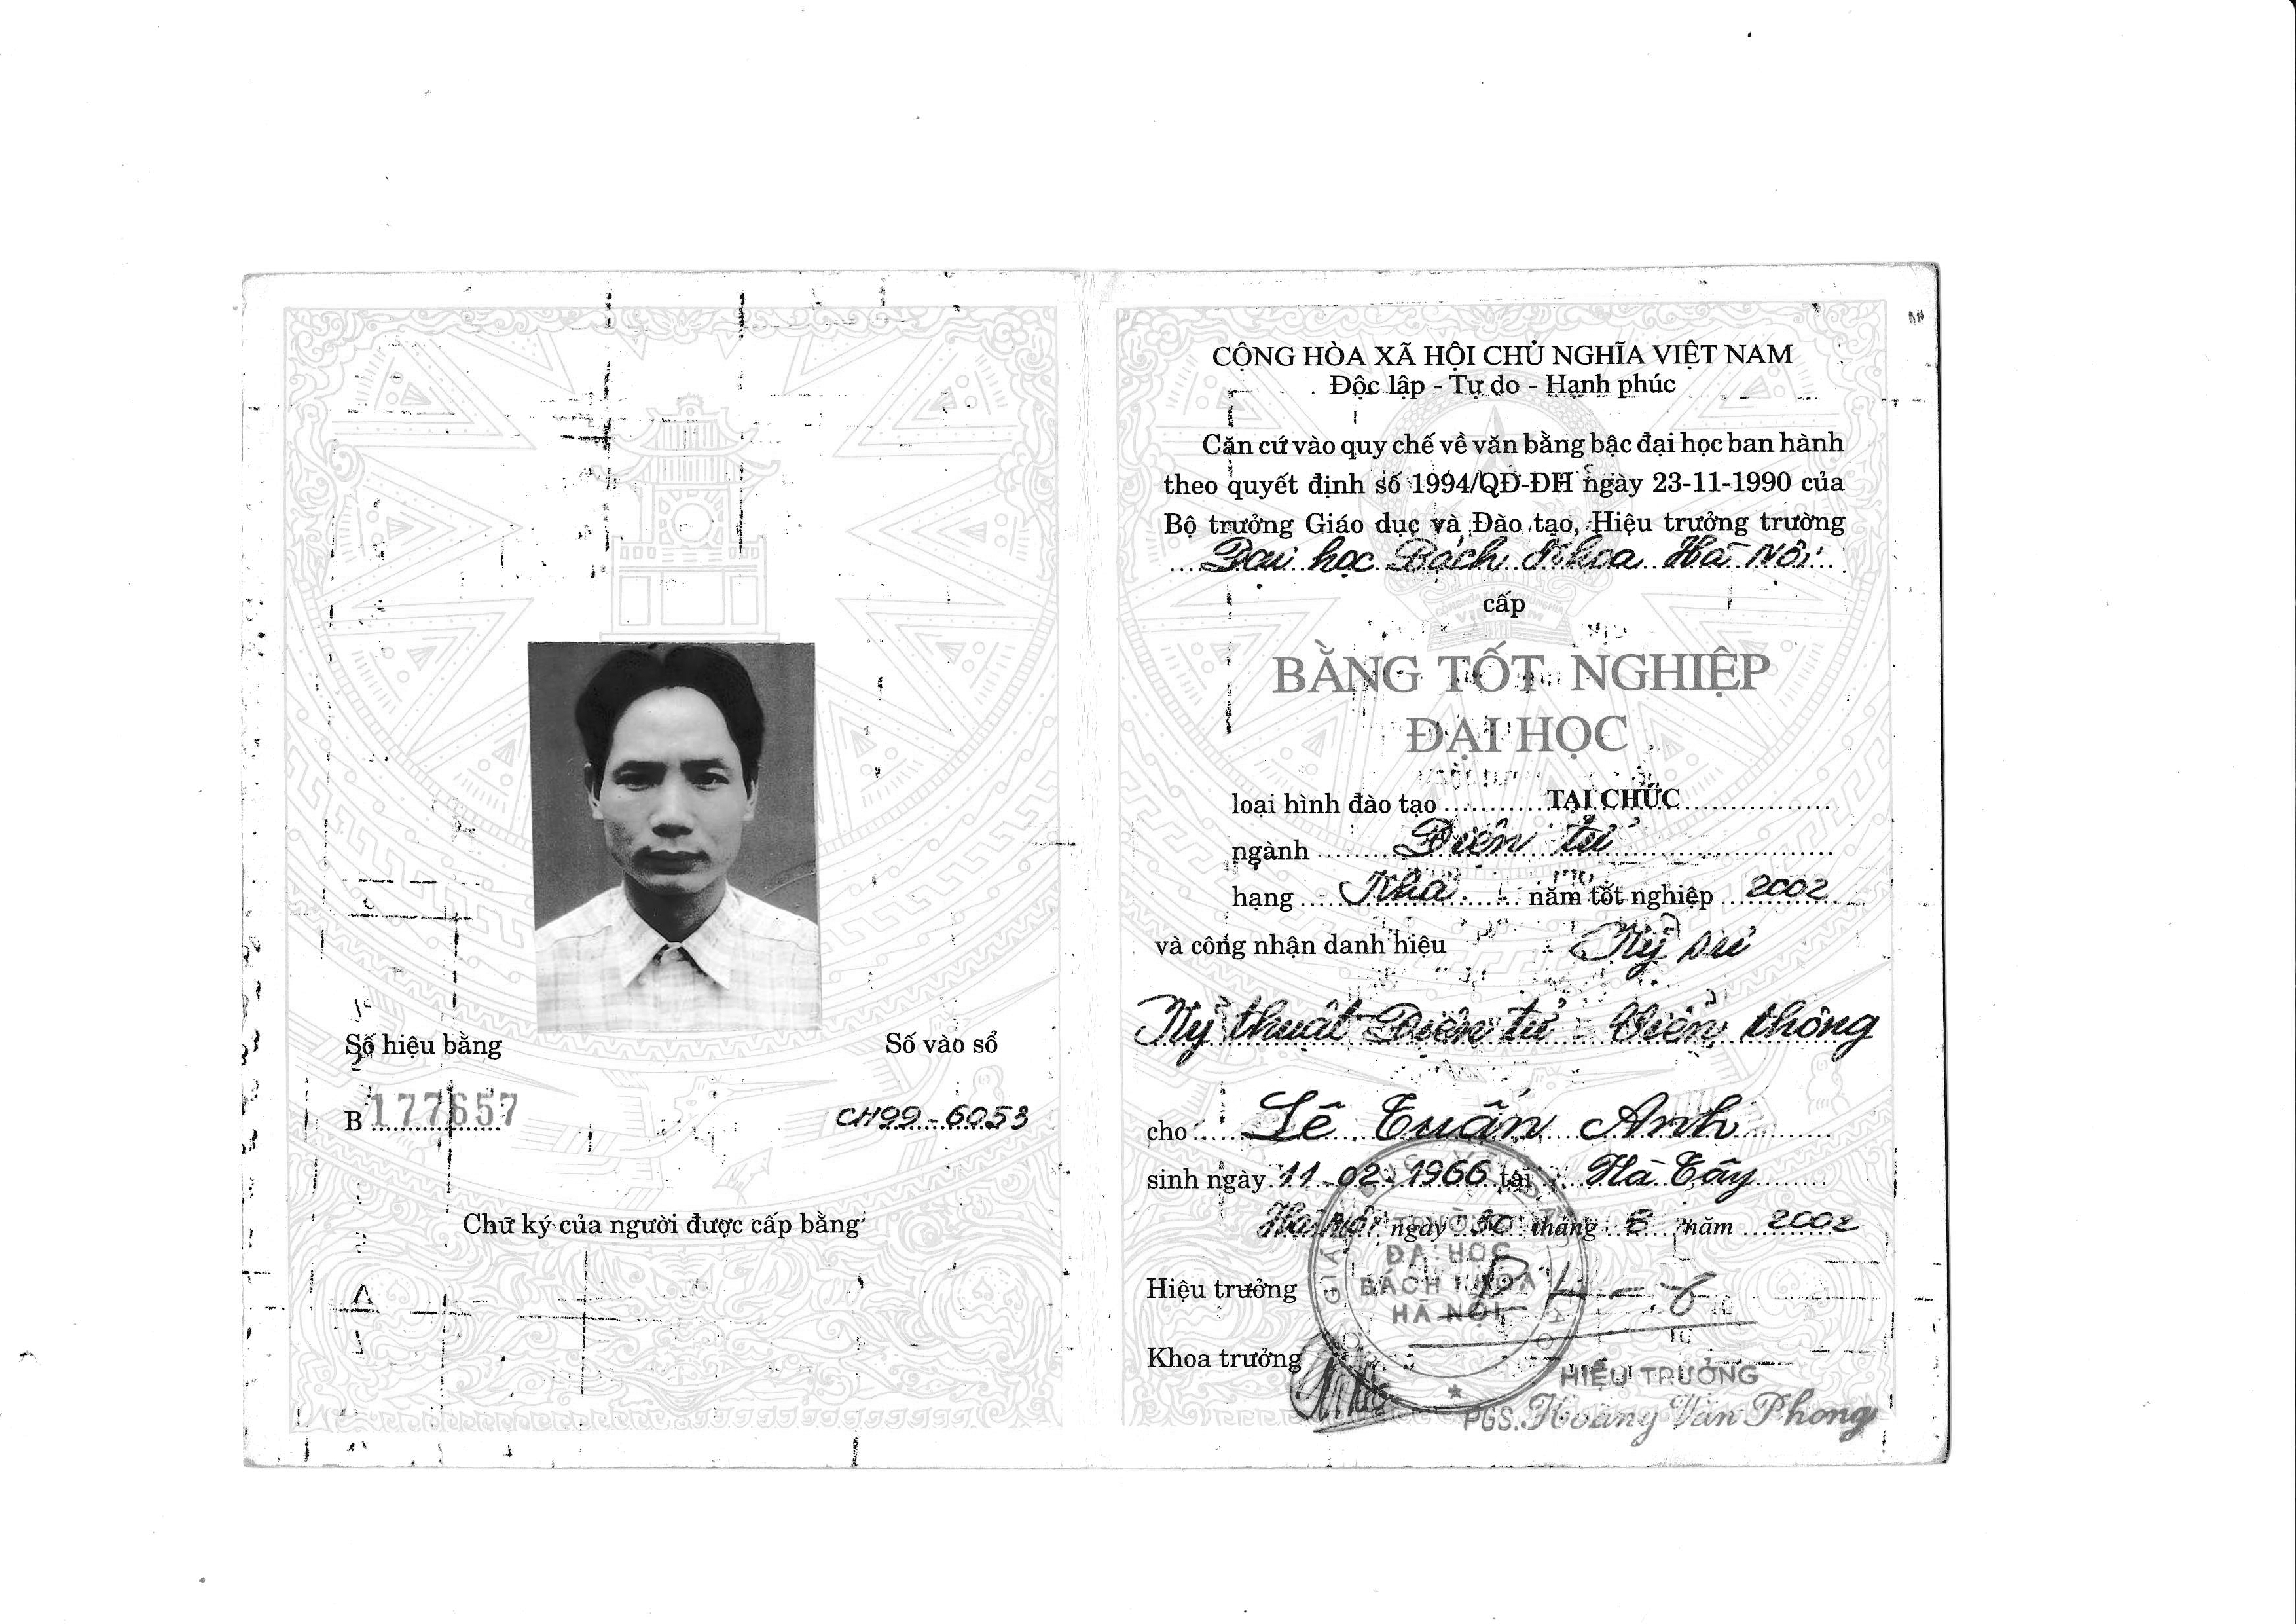 Số hiệu bằng
Số vào sổ
B 177657
CH99-6053
Chữ ký của người được cấp bằng
CỘNG HÒA XÃ HỘI CHỦ NGHĨA VIỆT NAM
Độc lập - Tự do - Hạnh phúc
Căn cứ vào quy chế về văn bằng bậc đại học ban hành
theo quyết định số 1994/QĐ-ĐH ngày 23-11-1990 của
Bộ trưởng Giáo dục và Đào tạo, Hiệu trưởng trường
Đại học Bách Khoa Hà Nội
cấp
BẰNG TỐT NGHIỆP
ĐẠI HỌC
loại hình đào tạo TẠI CHỨC
ngành Điện tử
hạng Khá năm tốt nghiệp 2002
và công nhận danh hiệu Kỹ sư
Kỹ thuật Điện tử Viễn thông
cho Lê Tuấn Anh
sinh ngày 11-02-1966 tại Hà Tây
Hà Nội ngày 30 tháng 8 năm 2002
Hiệu trưởng
ĐẠI HỌC
BÁCH KHOA
HÀ NỘI
Khoa trưởng
HIỆU TRƯỞNG
PGS. Hoàng Văn Phong